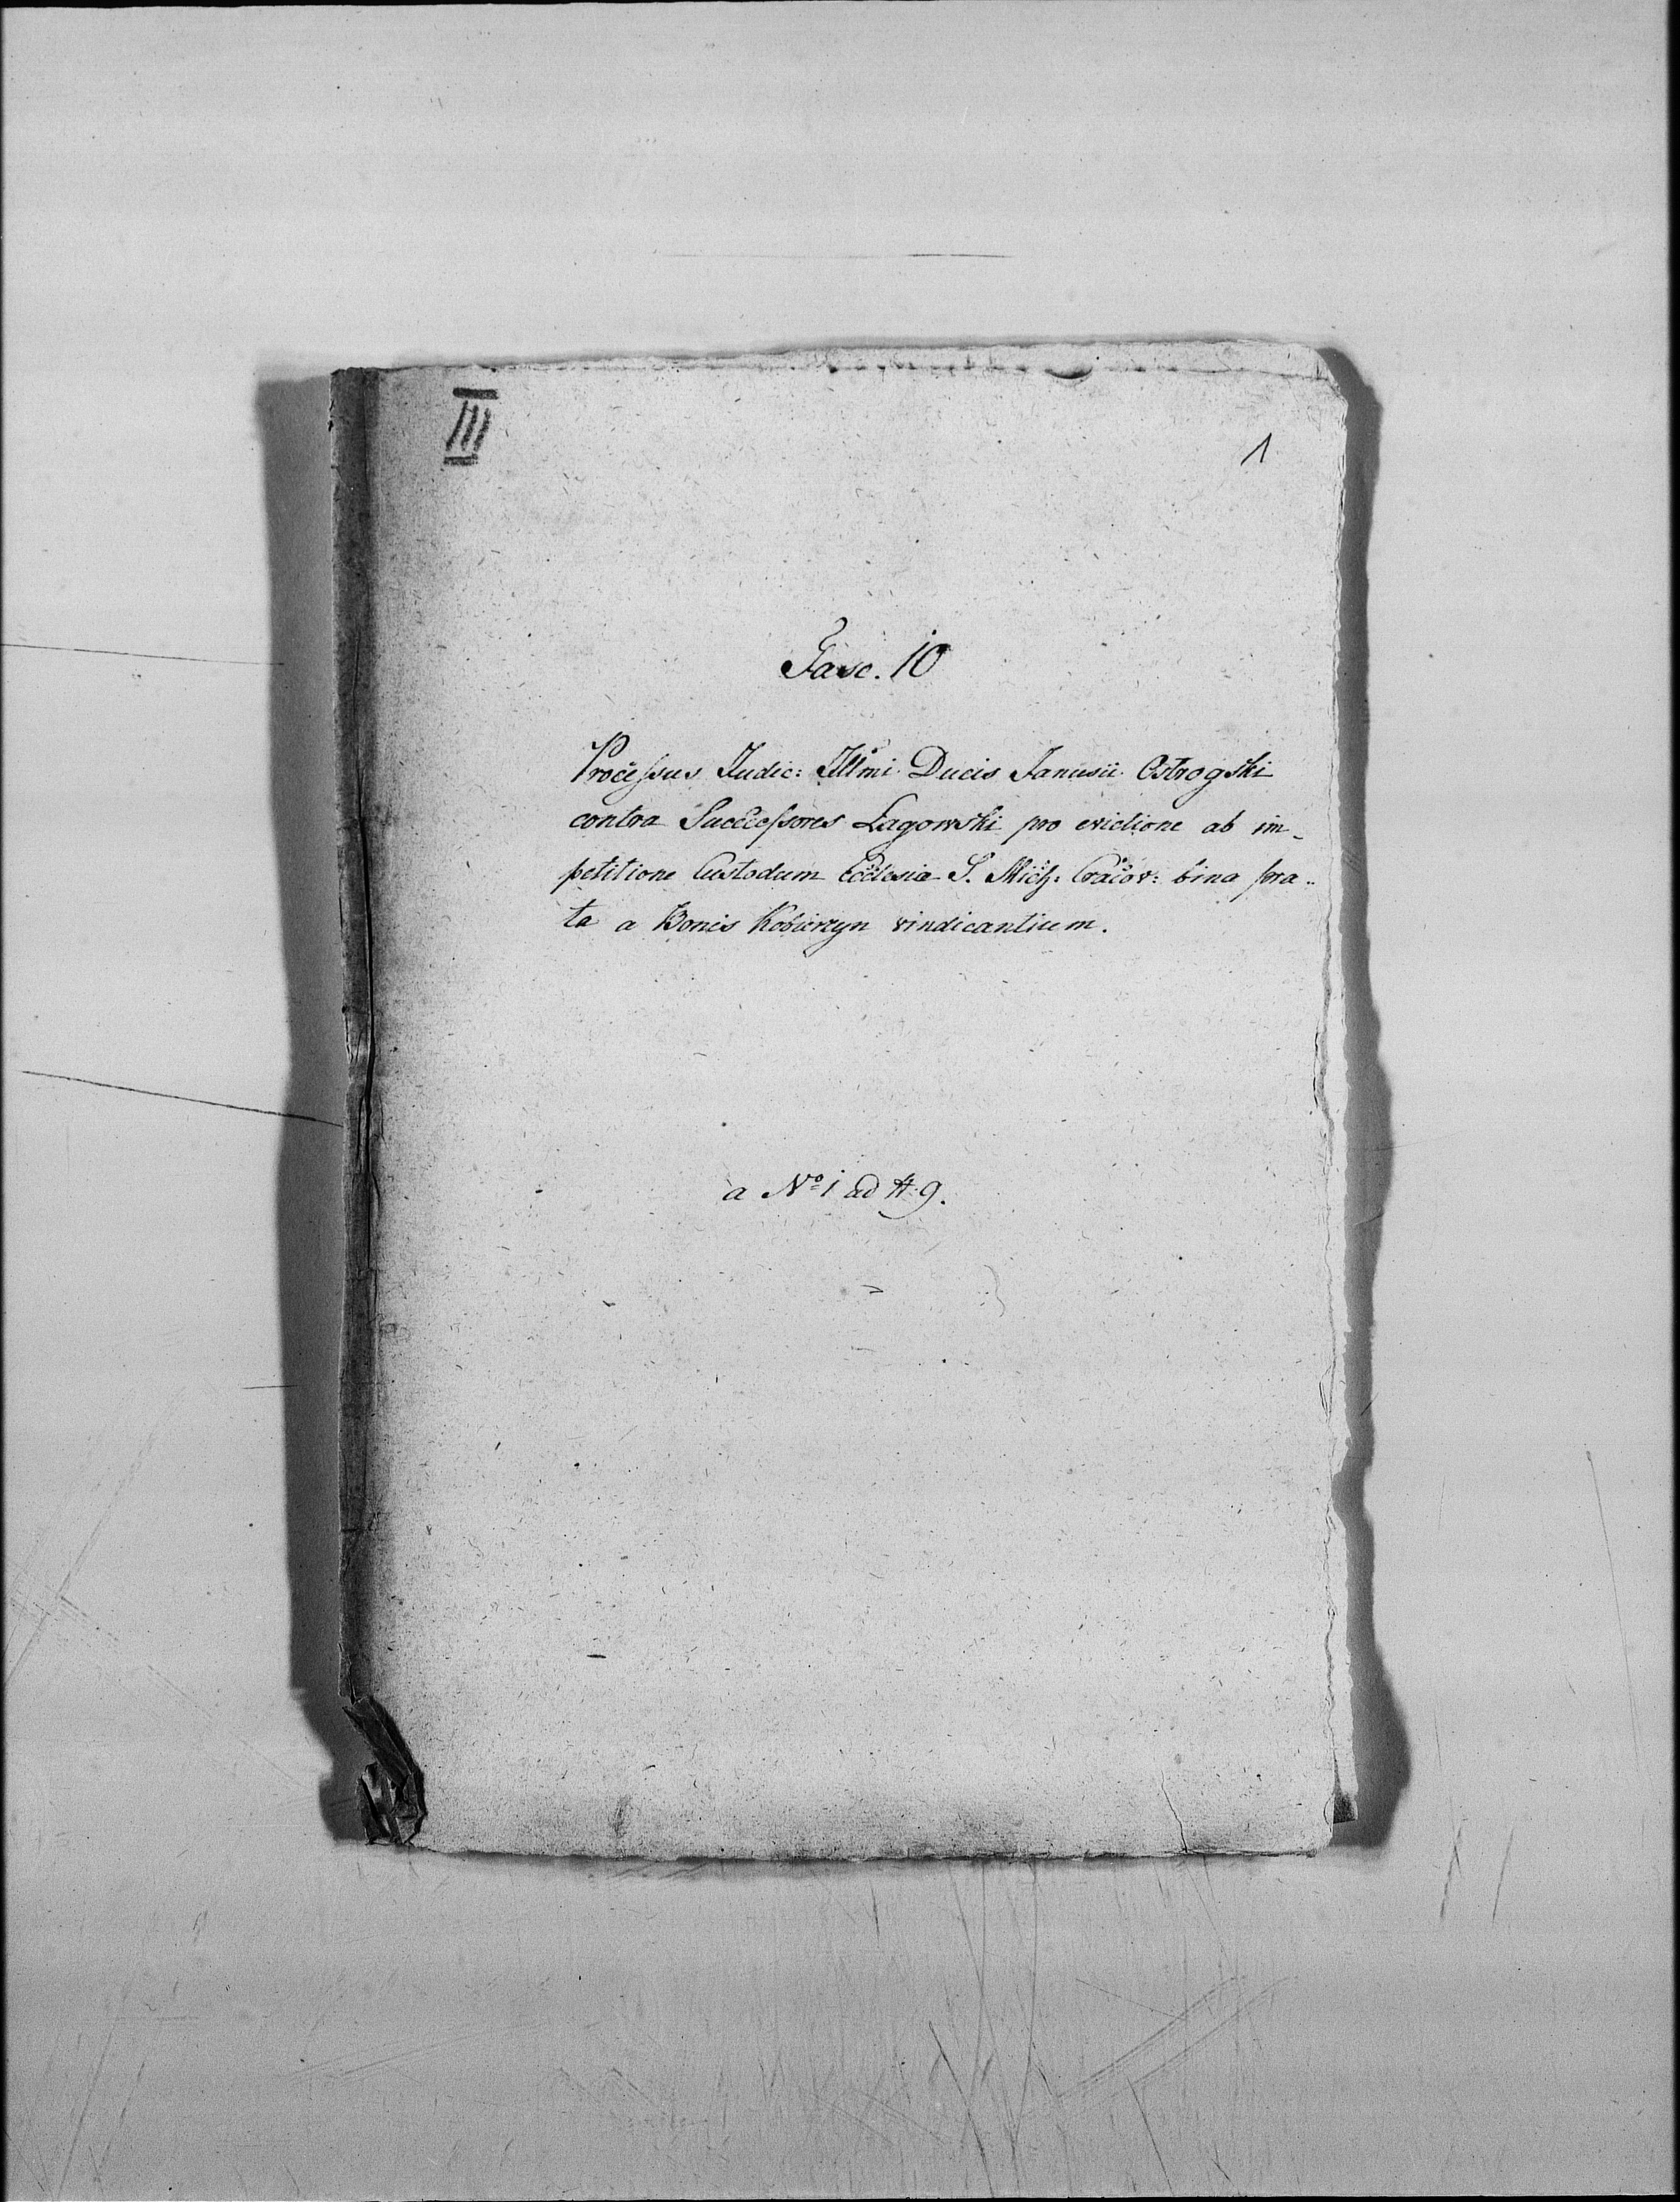 III
1
Fasc. 10
Processus Judic: Illmi Ducis Janusii Ostrogski
contra Successores Łagowski pro evictione ab im-
petitione Custodum Ecclesiæ S. Mich: Cracov: bina pra-
ta a Bonis Kobierzyn vindicantium.
a Nº 1 ad № 9.